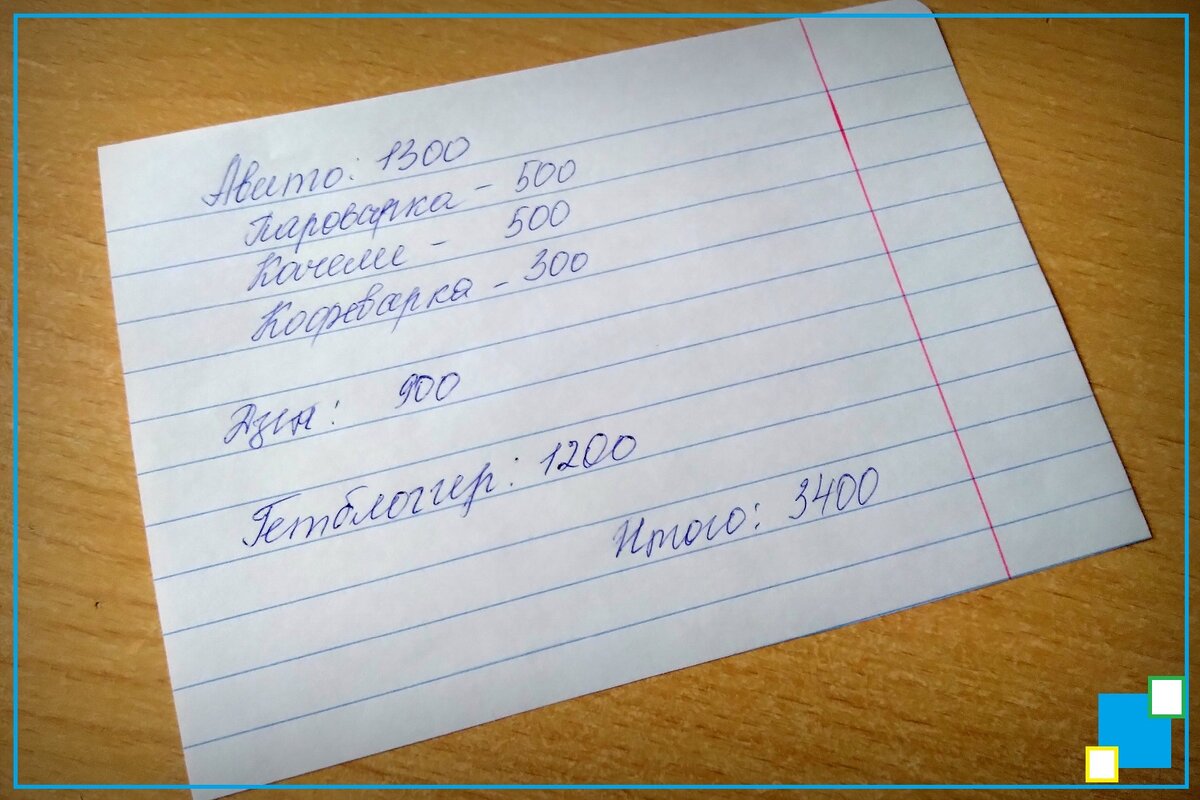 Авито: 1300
Пароварка - 500
Качели - 500
Кофеварка - 300
Дзен: 900
Гетблоггер: 1200
Итого: 3400